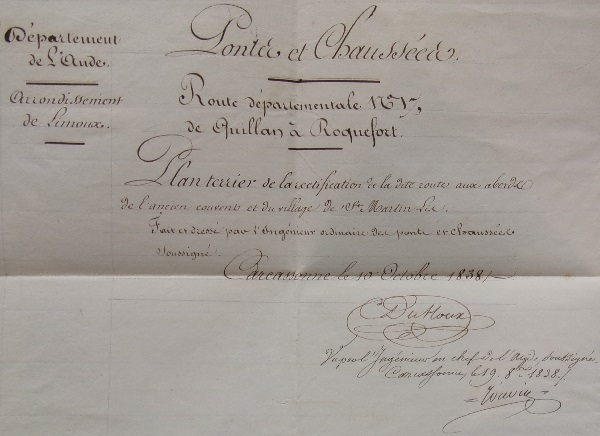 Département
de L'Aude.
Arrondissement
de Limoux.
Ponts et Chaussées.
Route départementale
de Quillan à Roquefort.
Plan terrier de la rectification de la dite route aux abords
de l'ancien couvent et du village de St. Martin Lis.
Fait et dressé par l'Ingénieur ordinaire des ponts et chaussées
soussigné.
Carcassonne le 10 Octobre 1838
Vu par l'Ingénieur en chef de l'Aude, soussigné
Carcassonne, le 19. 8bre 1838.